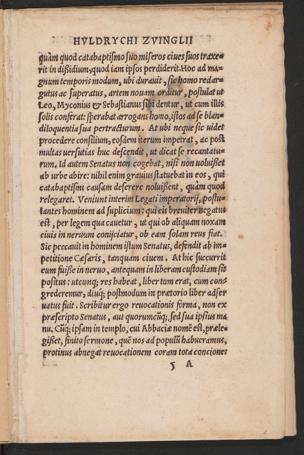 HVLDRYCHI ZVINGLII
quàm quod catabaptismo suo miseros ciues suos traxe-
rit in dissidium, quod iam ipsos perdiderit. Hoc ad ma-
gnum temporis modum, ubi durauit, sic homo redar-
gutus ac superatus, artem nouam orditur, postulat ut
Leo, Myconius & Sebastianus sibi dentur, ut cum illis
solis conferat: sperabat arrogans homo, istos ad se blan-
diloquentia sua pertracturum. At ubi neque sic uidet
procedere consilium, eosdem iterum impetrat, ac post
multas uersutias huc descendit, ut dicat se recantatu-
rum. Id autem Senatus non cogebat, nisi non uoluisset
ab urbe abire: nihil enim grauius statuebat in eos, qui
catabaptismi causam deserere noluissent, quàm quod
relegaret. Veniunt interim Legati imperatoris, postu-
lantes hominem ad supplicium: qui eis breuiter negatus
est, per legem qua cauetur, ut qui ob aliquam noxam
ciuis in neruum conijciatur, ob eam solam reus fiat.
Sic peccauit in hominem istum Senatus, defendit ab im-
petitione Cæsaris, tanquam ciuem. At hic succurrit
eum fuisse in neruo, antequam in liberam custodiam sit
positus: utcunque res habeat, liber tum erat, cum con-
grederemur, diuque postmodum in prætorio liber adser-
uatus fuit. Scribitur ergo reuocationis forma, non ex
præscripto Senatus, aut quorumcunque, sed sua ipsius ma-
nu. Cunque ipsam in templo, cui Abbaciæ nomen est, præle-
gisset, finito sermone, quem nos ad populum habueramus,
protinus abnegat reuocationem coram tota concione:
A